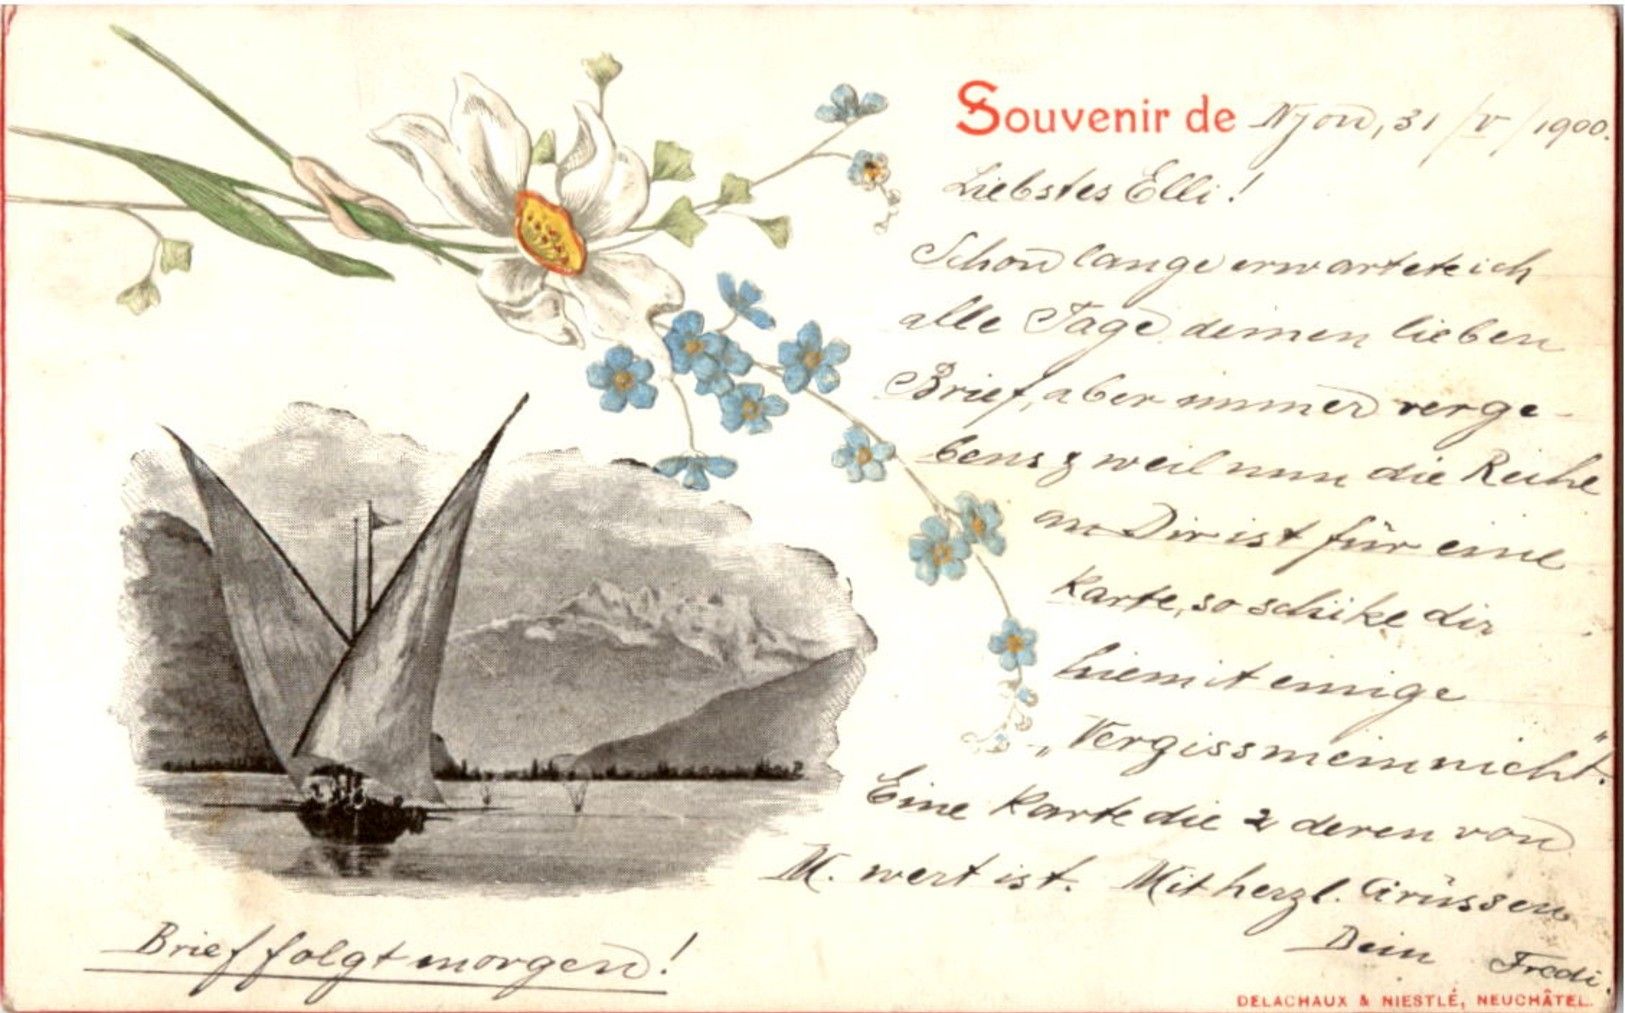 Souvenir de Nyon, 31/V/1900.
Liebstes Elli!
Schon lange erwartete ich
alle Tage deinen lieben
Brief, aber immer verge-
bens & weil nun die Reihe
an Dir ist für eine
Karte, so schike dir
hiemit einige
„Vergissmeinnicht."
Eine Karte die 2 deren von
M. wert ist. Mit herzl. Grüssen
Dein Fredi.
Brief folgt morgen!
DELACHAUX & NIESTLÉ, NEUCHÂTEL.